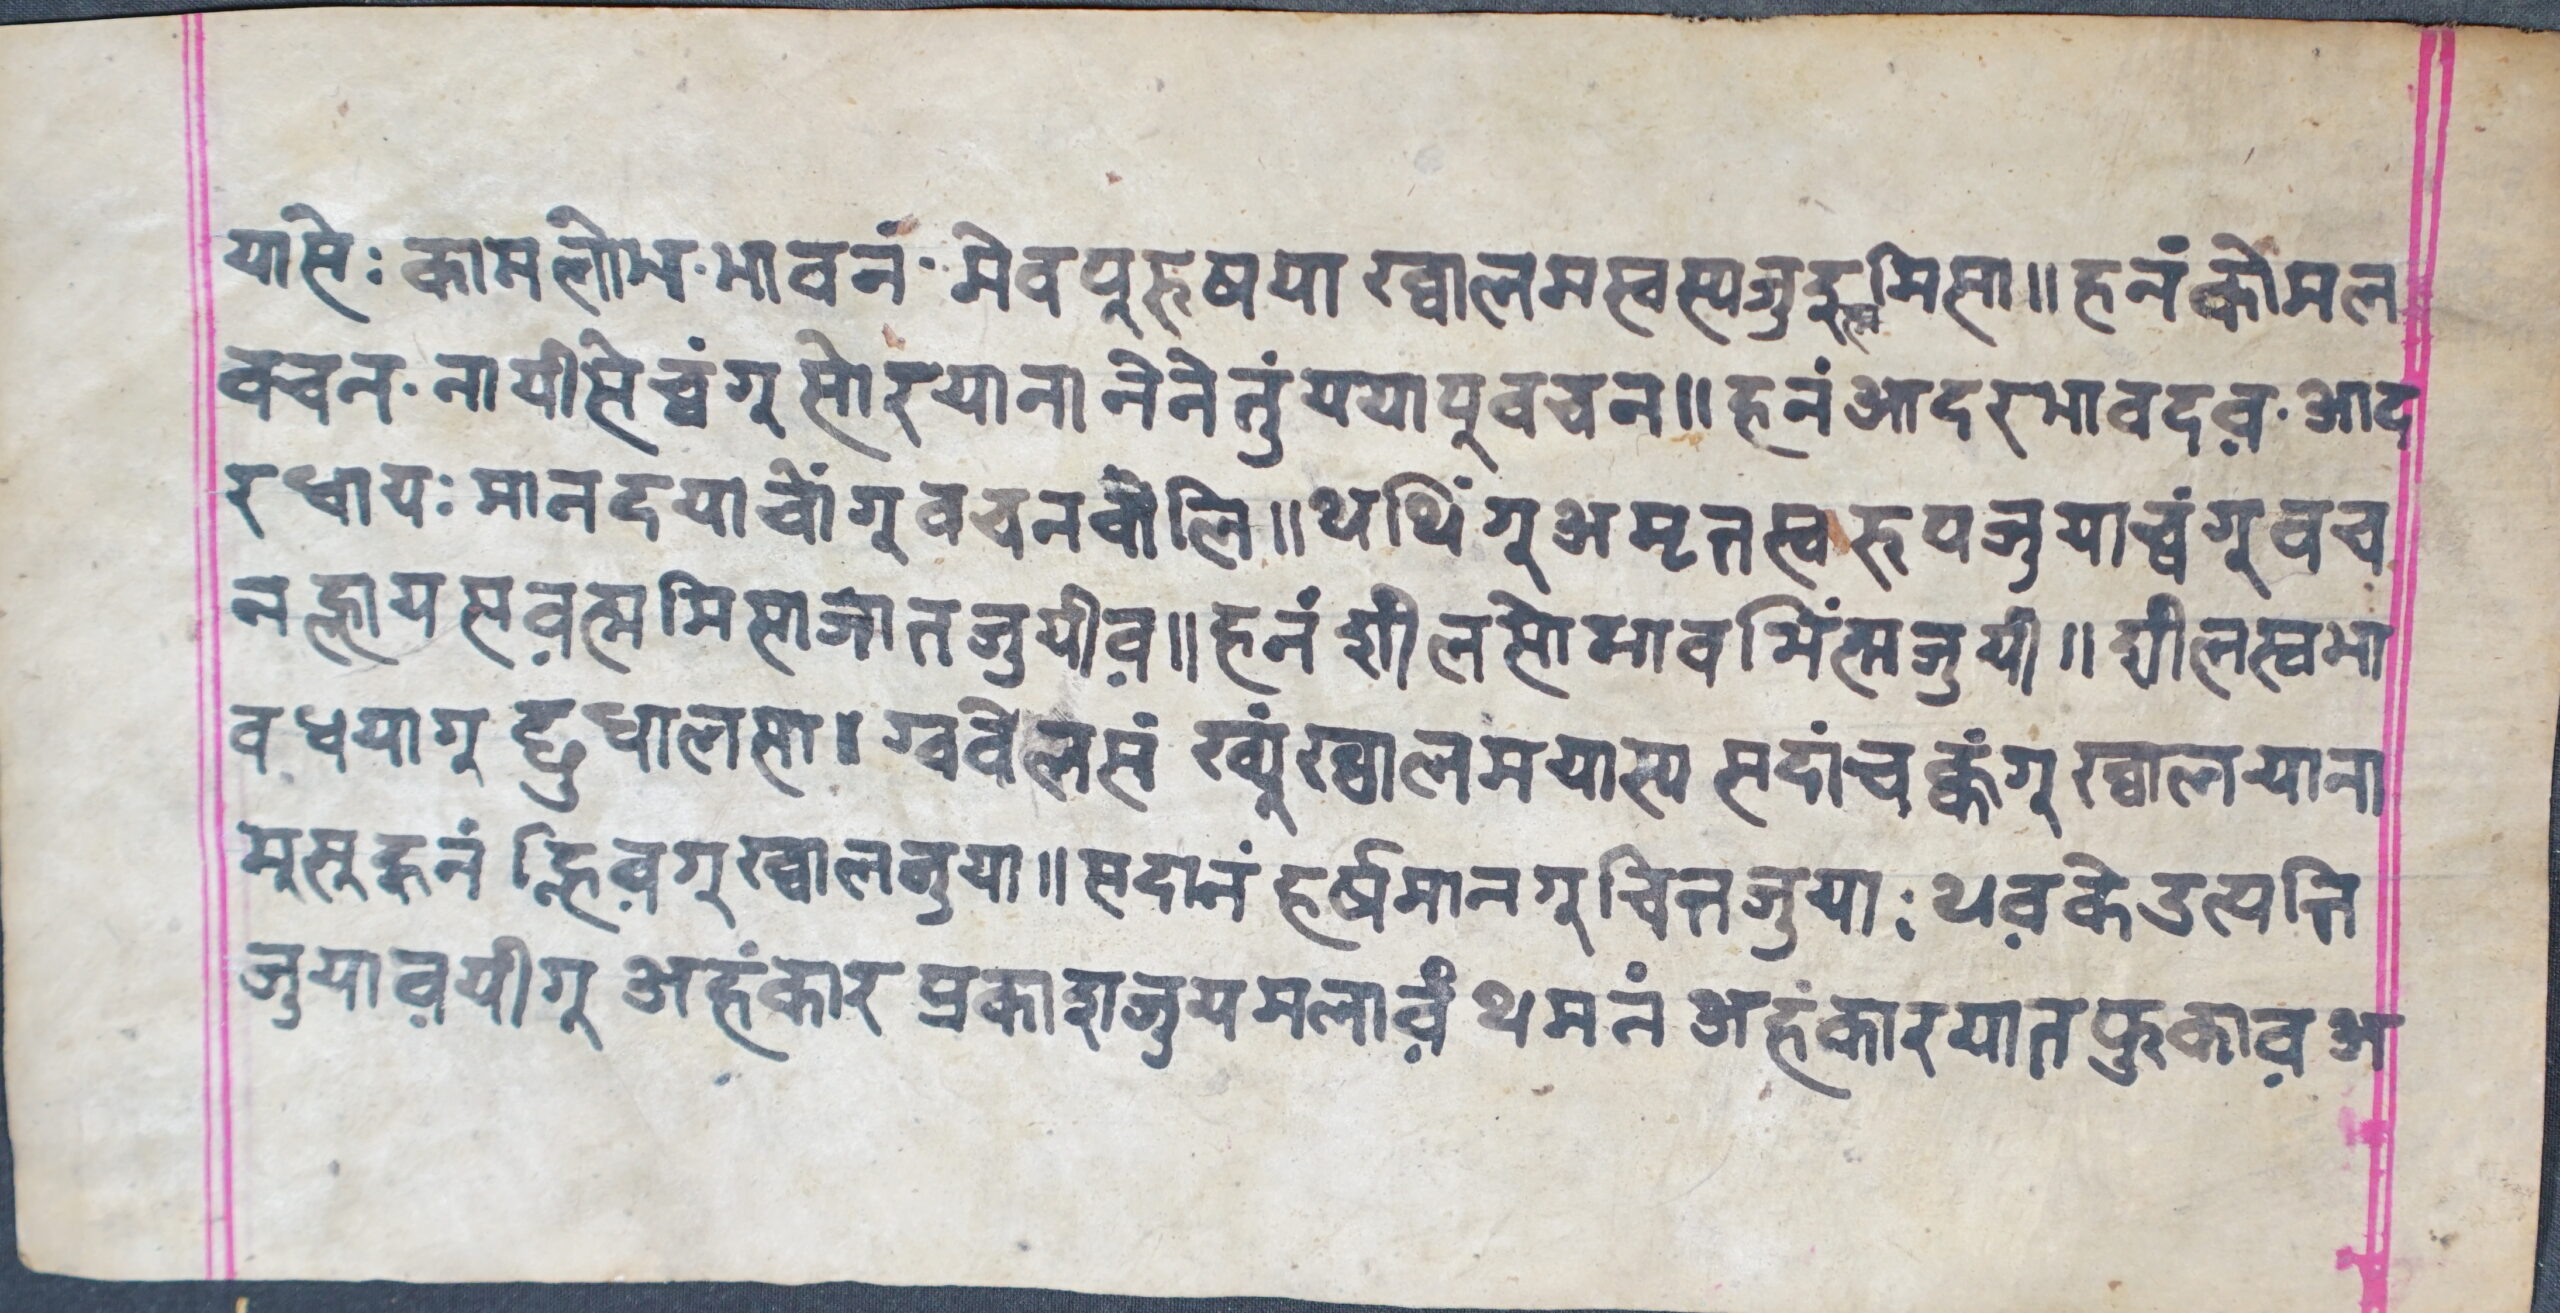 यासेः कामलोभ·भावनं·मेवपुरूषया ख्वालमस्वस्यजुइह्ममिसा॥हनंकोमल
वचन·नायीसेच्वंगुसोरयानानेनेतुंययापुवचन॥हनंआदरभावदव़·आद
रधायः मानदयाचोंगुवचनबोलि॥थथिंगुअमृतस्वरूपजुयाच्वंगुवच
नह्लायसव़ह्ममिसाजातजुयीव़॥हनंशीलसोभावभिंह्मजुयी॥शीलस्वभा
वधयागु छुधालसा॥ग्वबेलसं ख्युंख्वालमयास्य सदांचकंगुख्वालयाना
मुसुहुनं ह्निव़गुख्वालजुया॥सदानं हर्षमानगुचित्तजुयाः थव़केउत्पत्ति
जुयाव़यीगु अहंकार प्रकाशजुयमलाव़ं थमनं अहंकारयातफुकाव़अ